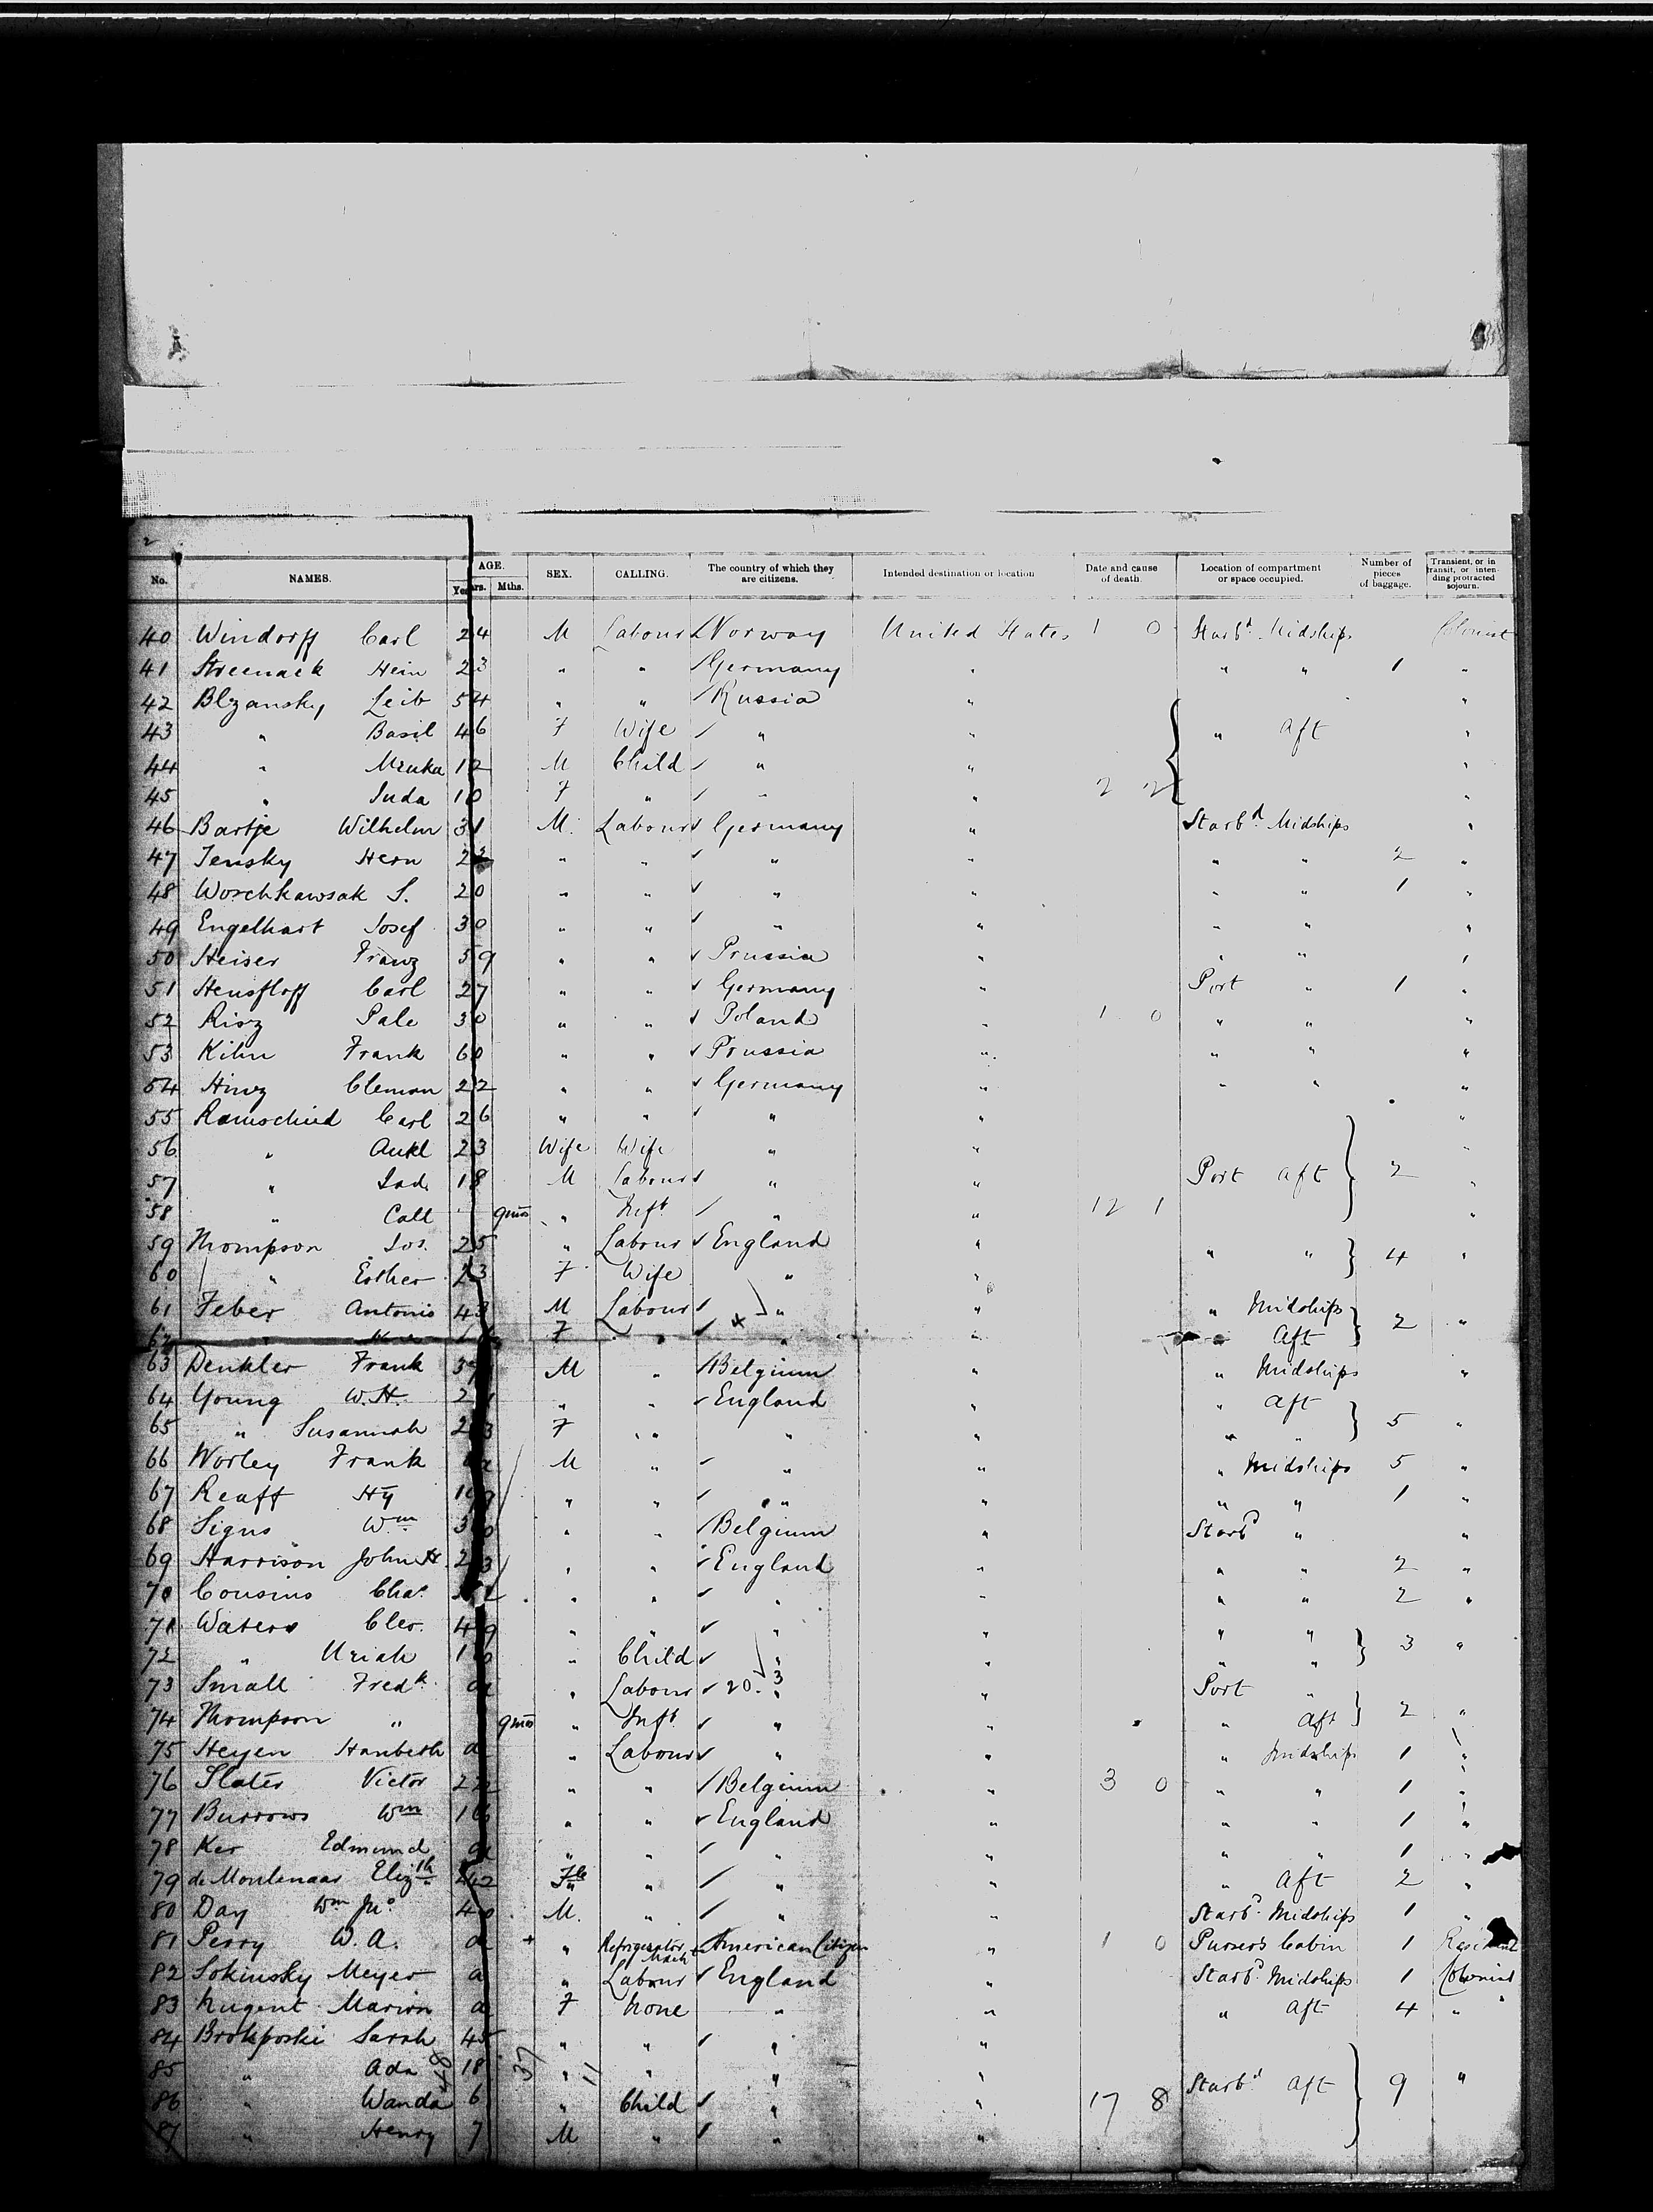 2
No. NAMES. AGE. Yrs. Mths. SEX. CALLING. The country of which they are citizens. Intended destination or location Date and cause of death. Location of compartment or space occupied. Number of pieces of baggage. Transient, or in transit, or intending protracted sojourn.
40 Windorff Carl 24 M Labour ✓ Norway United States 1 0 Starbd Midships Colonist
41 Streenack Hein 23 " " ✓ Germany " " " 1 "
42 Blzansky Leib 54 " " ✓ Russia " "
43 " Basil 46 F Wife ✓ " " " Aft "
44 " Mnuka 12 M Child ✓ " " "
45 " Juda 10 F " ✓ " " 2 2 "
46 Bartje Wilhelm 31 M. Labour ✓ Germany " Starbd Midships "
47 Jensky Hern 22 " " ✓ " " " " 2 "
48 Worchkawsak S. 20 " " ✓ " " " " 1 "
49 Engelhart Josef 30 " " ✓ " " " " "
50 Heiser Franz 59 " " ✓ Prussia " " " "
51 Hensfloff Carl 27 " " ✓ Germany " Port " 1 "
52 Risz Pale 30 " " ✓ Poland " 1 0 " " "
53 Kihn Frank 60 " " ✓ Prussia " " " "
54 Hinz Cleman 22 " " ✓ Germany " " " "
55 Ramschied Carl 26 " " ✓ " " "
56 " Aukl 23 Wife Wife " " "
57 " Lad. 18 M Labour ✓ " " Port Aft 2 "
58 " Call 9mos " Inft ✓ " " 12 1 "
59 Thompson Jos. 25 " Labour ✓ England " " " 4 "
60 " Esther 23 F Wife " "
61 Feber Antonio 43 M Labour ✓ " " " Midships 2 "
62 " F " ✓ " " " Aft
63 Denkler Frank 37 M " ✓ Belgium " " Midships "
64 Young W.H. 2 " " ✓ England " " Aft
65 " Susannah 23 F " " " " " 5 "
66 Worley Frank a M " ✓ " " " Midships 5 "
67 Reaff Hy 19 " " ✓ " " " " 1 "
68 Signs Wm 30 " " ✓ Belgium " Starbd " "
69 Harrison John H. 23 " " ✓ England " " " 2 "
70 Cousins Chas. " " ✓ " " " " 2 "
71 Waters Cler. 49 " " ✓ " " " " 3 "
72 " Uriah 1 " Child ✓ " " " "
73 Small Fredk. a " Labour ✓ 20. 3 " " Port "
74 Thompson " 9mos " Inft ✓ " " " Aft 2 "
75 Heyen Hanbeth a " Labour ✓ " " " Midships 1 "
76 Slater Victor 22 " " ✓ Belgium " 3 0 " " 1 "
77 Burrows Wm 16 " " ✓ England " " " 1 "
78 Ker Edmund a " " ✓ " " " " 1 "
79 de Moulenaar Elizth 42 Fle " ✓ " " " Aft 2 "
80 Day Wm Jno 40 M. " ✓ " " Starbd Midships 1 "
81 Perry W. A. a + " Refrigerator Mach + American Citizen " 1 0 Pursers Cabin 1 Resident
82 Sokinsky Meyer a " Labour ✓ England " Starbd Midships 1 Colonist
83 Nugent Marion a F None " " " Aft 4 "
84 Brokposki Sarah 45 " " ✓ " "
85 " Ada 48 18 37 " 11 " " " Starbd Aft 9 "
86 " Wanda 6 " Child ✓ " " 17 8
87 " Henry 7 M " ✓ " "